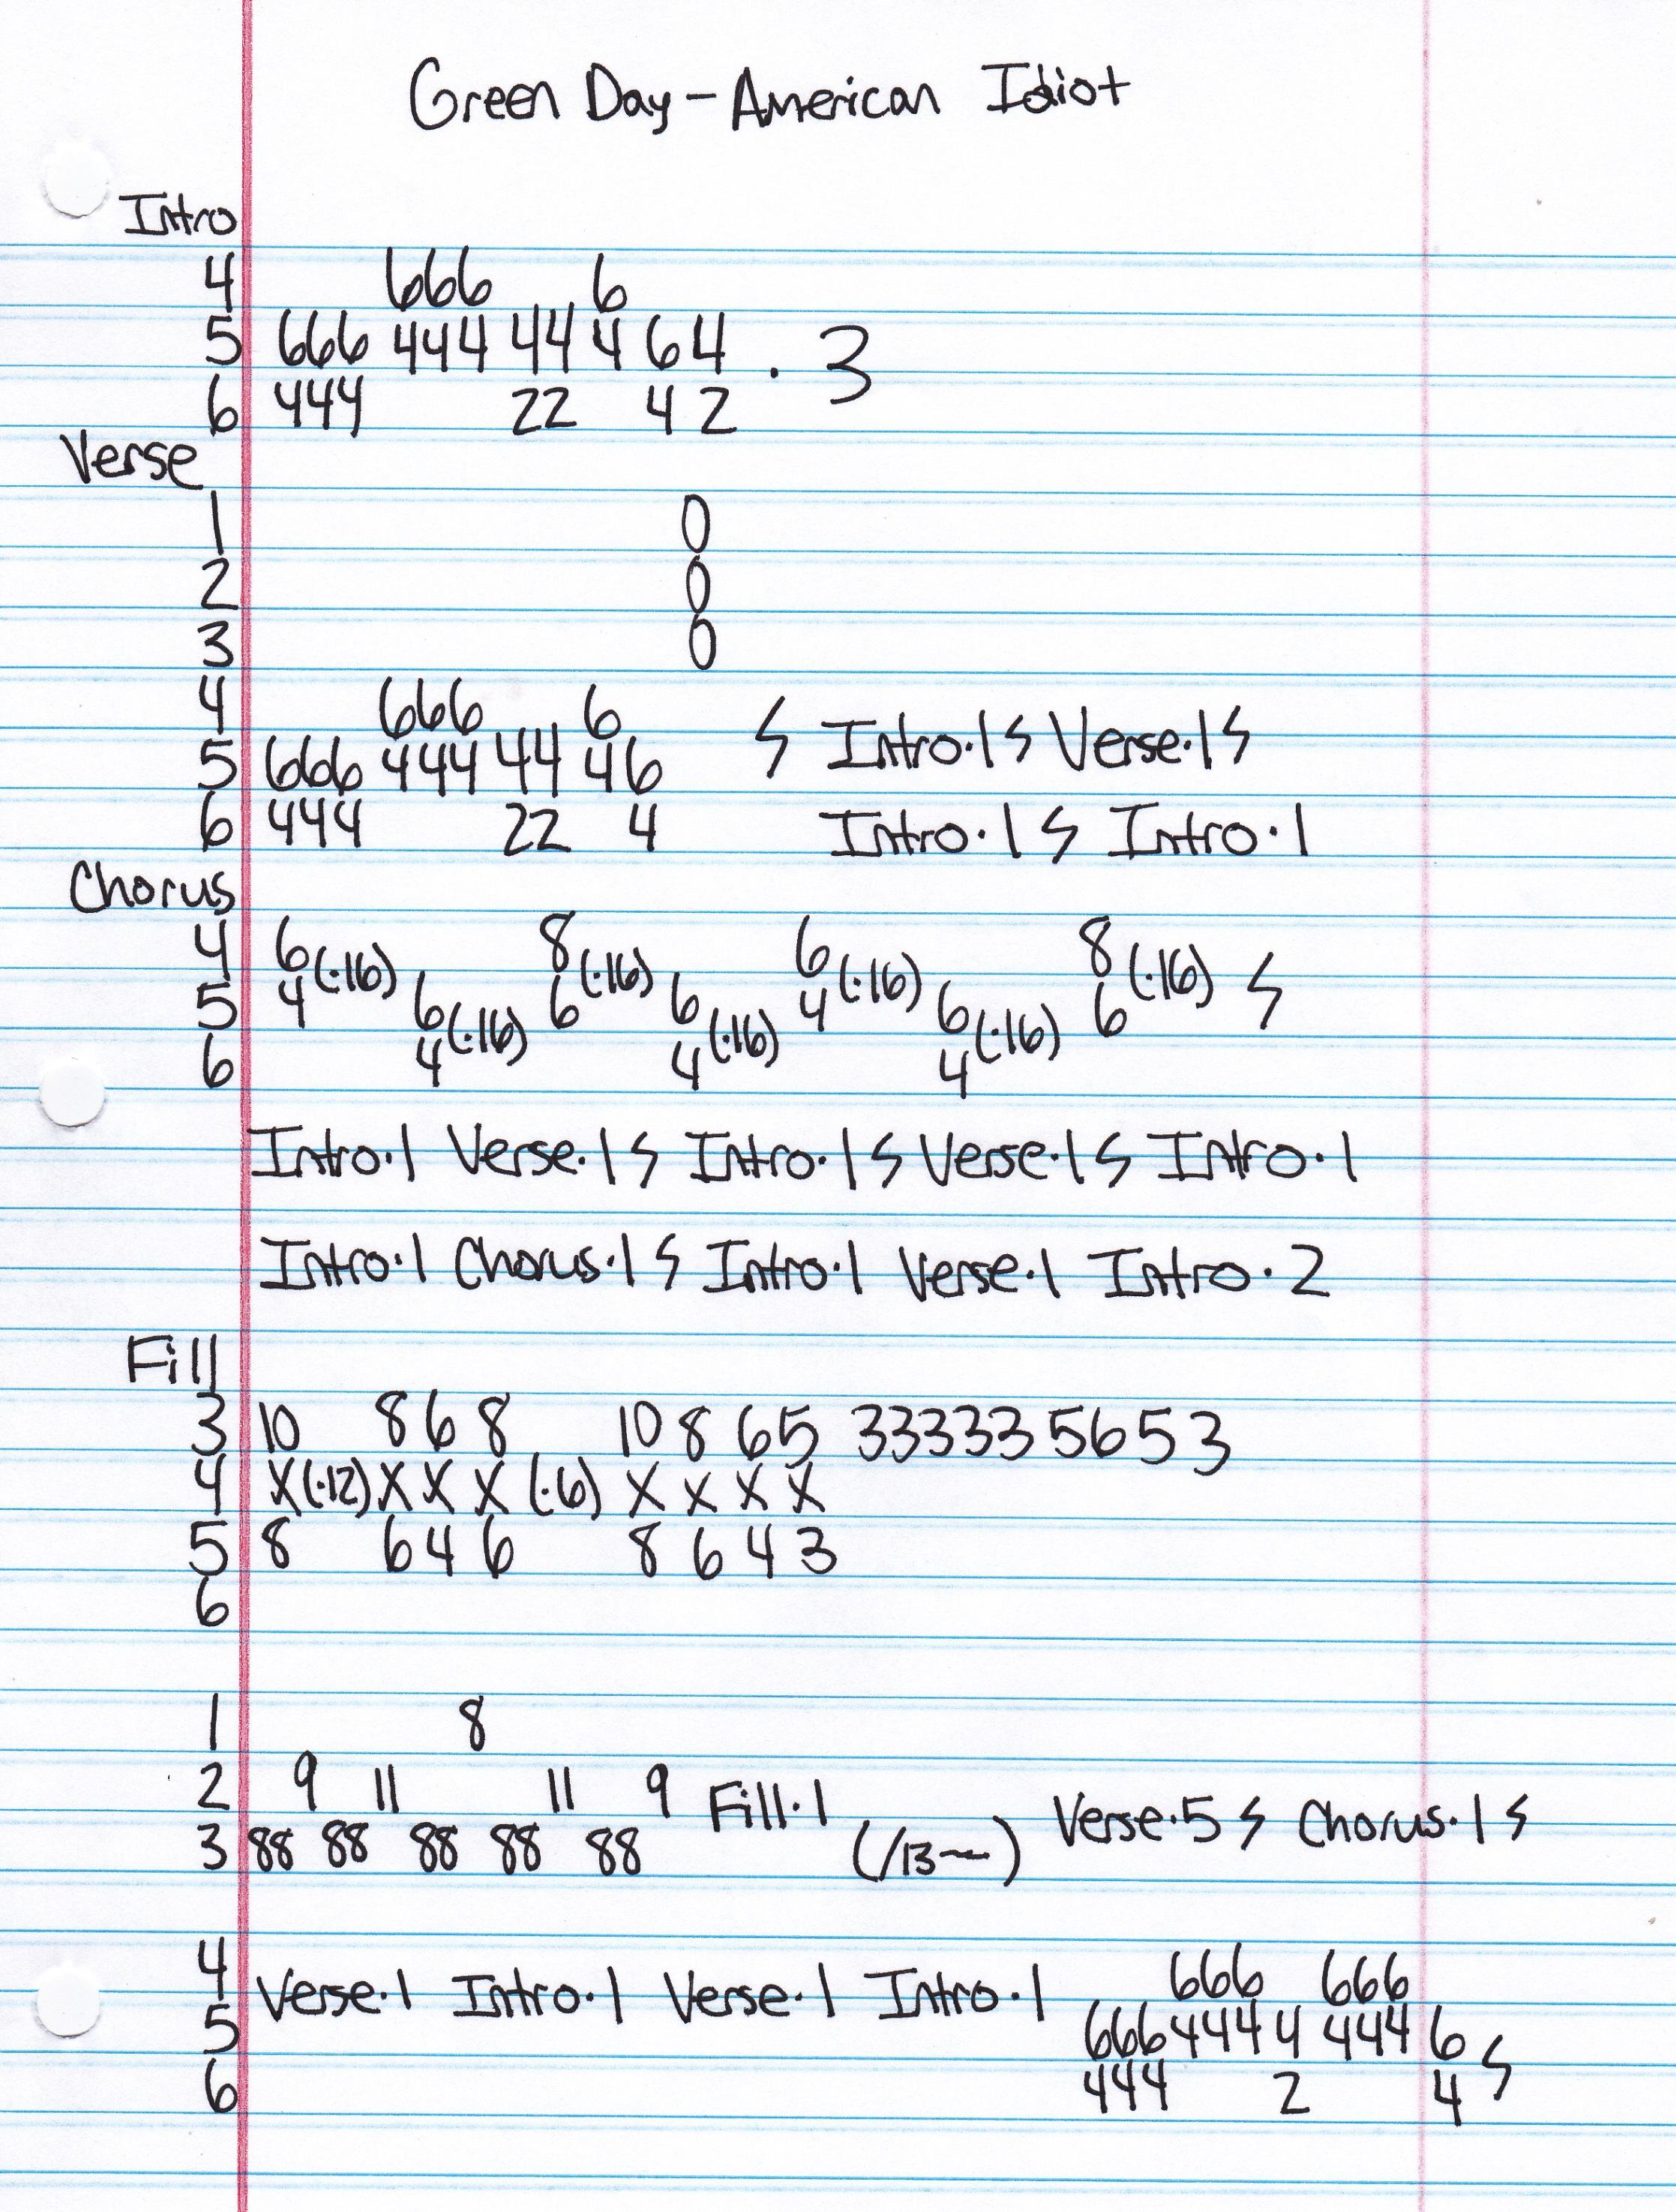 Green Day - American Idiot
Intro
4 666 6
5 666 444 44 4 6 4 . 3
6 444 22 4 2
Verse
1 0
2 0
3 0
4 666 6
5 666 444 44 4 6 ϟ Intro·1 ϟ Verse·1 ϟ
6 444 22 4 Intro·1 ϟ Intro·1
Chorus
4 6(·16) 8(·16) 6(·16) 8(·16) ϟ
5 4 6(·16) 6 6(·16) 4 6(·16) 6
6 4 4 4
Intro·1 Verse·1 ϟ Intro·1 ϟ Verse·1 ϟ Intro·1
Intro·1 Chorus·1 ϟ Intro·1 Verse·1 Intro·2
Fill
3 10 8 6 8 10 8 6 5 33333 5 6 5 3
4 X(·12) X X X (·6) X X X X
5 8 6 4 6 8 6 4 3
6
1 8
2 9 11 11 9 Fill·1 Verse·5 ϟ Chorus·1 ϟ
3 88 88 88 88 88 (/13~)
4 666 666
Verse·1 Intro·1 Verse·1 Intro·1
5 666 444 4 444 6 ϟ
6 444 2 4